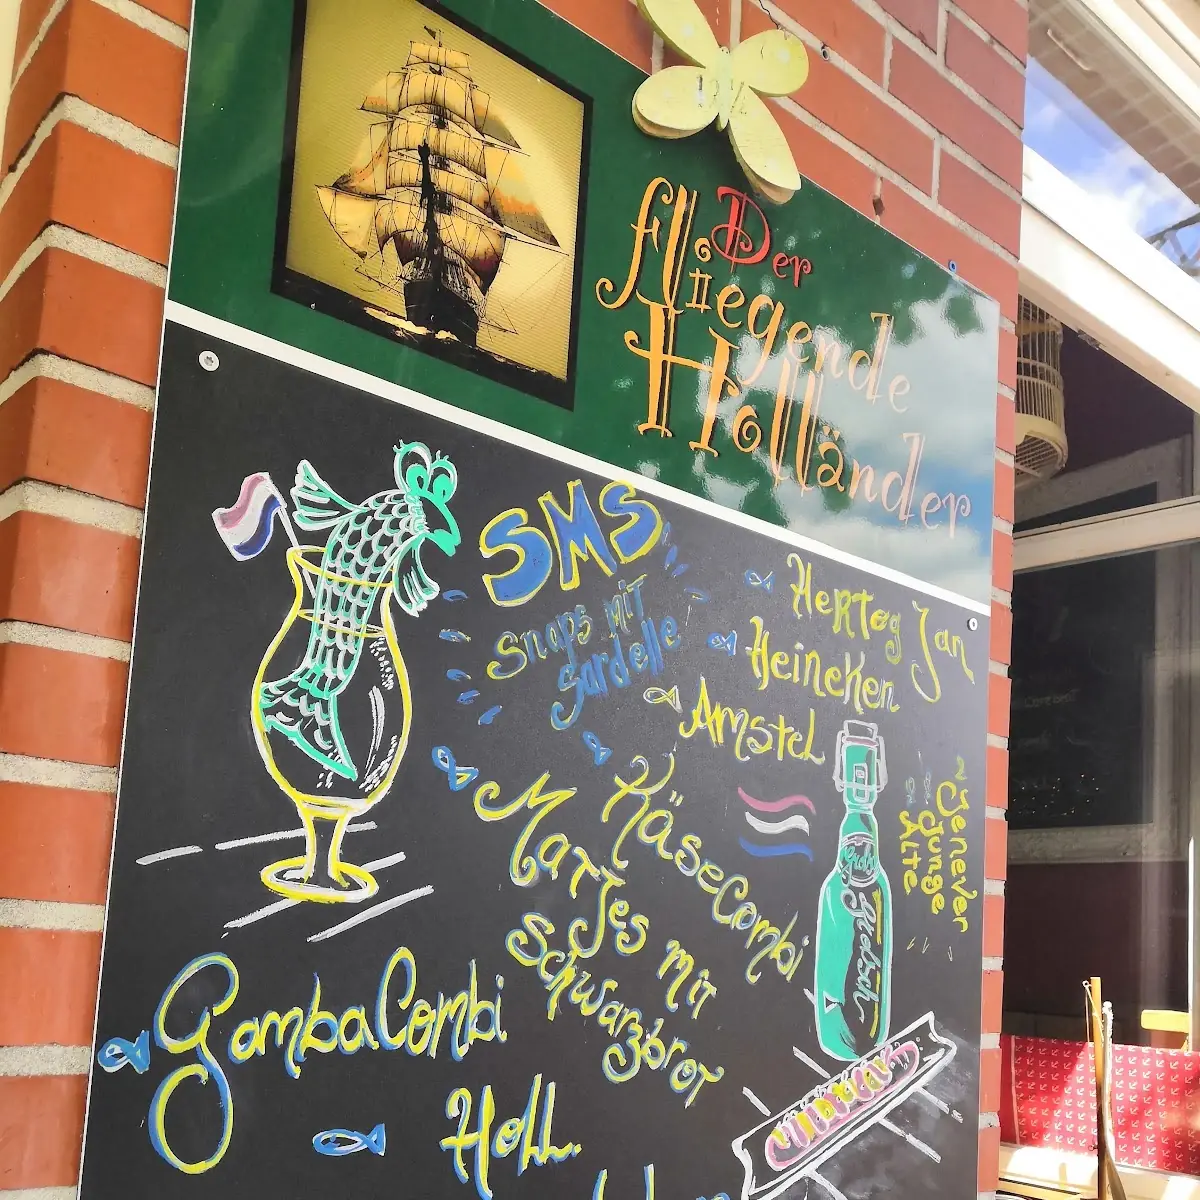 Der
fliegende
Holländer
SMS
Snaps mit
Sardelle
Hertog Jan
Heineken
Amstel
KäseCombi
Matjes mit
Schwarzbrot
~Jenever
Junge
Alte
GambaCombi
Holl.